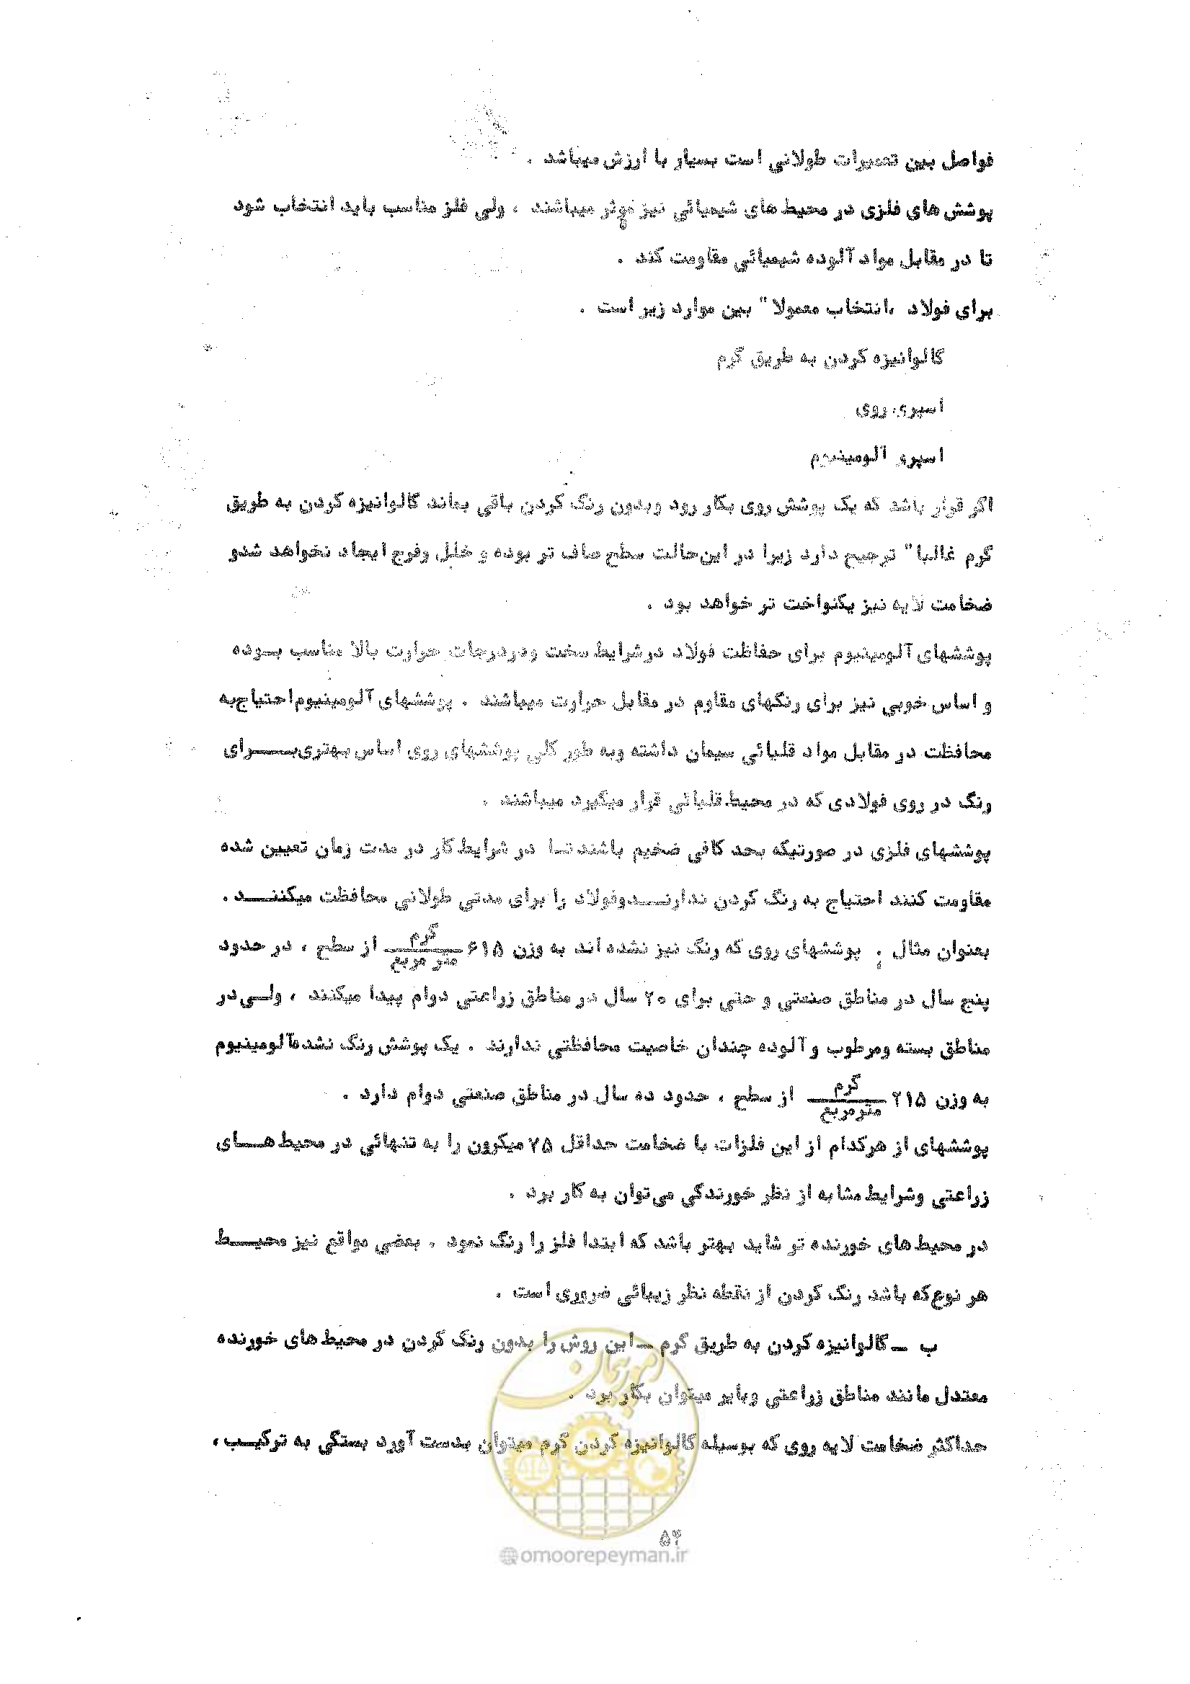 فواصل بین تعمیرات طولانی است بسیار با ارزش میباشد .
پوشش های فلزی در محیط های شیمیائی نیز موثر میباشند ، ولی فلز مناسب باید انتخاب شود
تا در مقابل مواد آلوده شیمیائی مقاومت کند .
برای فولاد ،انتخاب معمولا" بین موارد زیر است .
گالوانیزه کردن به طریق گرم
اسپری روی
اسپری آلومینیوم
اگر قرار باشد که یک پوشش روی بکار رود وبدون رنگ کردن باقی بماند گالوانیزه کردن به طریق
گرم غالبا" ترجیح دارد زیرا در این‌حالت سطح صاف تر بوده و خلل وفرج ایجاد نخواهد شدو
ضخامت لایه نیز یکنواخت تر خواهد بود .
پوششهای آلومینیوم برای حفاظت فولاد درشرایط سخت ودردرجات حرارت بالا مناسب بــوده
و اساس خوبی نیز برای رنگهای مقاوم در مقابل حرارت میباشند . پوششهای آلومینیوم‌احتیاج‌به
محافظت در مقابل مواد قلیائی سیمان داشته وبه طور کلی پوششهای روی اساس بهتری‌بــــرای
رنگ در روی فولادی که در محیط‌قلیائی قرار میگیرد میباشند .
پوششهای فلزی در صورتیکه بحد کافی ضخیم باشند تــا در شرایط کار در مدت زمان تعیین شده
مقاومت کنند احتیاج به رنگ کردن ندارنــــدوفولاد را برای مدتی طولانی محافظت میکننــــد .
بعنوان مثال : پوششهای روی که رنگ نیز نشده اند به وزن ۶۱۵ گرم/متر مربع از سطح ، در حدود
پنج سال در مناطق صنعتی و حتی برای ۲۰ سال در مناطق زراعتی دوام پیدا میکنند ، ولــی‌در
مناطق بسته ومرطوب وآلوده چندان خاصیت محافظتی ندارند . یک پوشش رنگ نشده‌آلومینیوم
به وزن ۲۱۵ گرم/مترمربع از سطح ، حدود ده سال در مناطق صنعتی دوام دارد .
پوششهای از هرکدام از این فلزات با ضخامت حداقل ۷۵ میکرون را به تنهائی در محیط هــــای
زراعتی وشرایط مشابه از نظر خورندگی می‌توان به کار برد .
در محیط های خورنده تر شاید بهتر باشد که ابتدا فلز را رنگ نمود . بعضی مواقع نیز محیـــط
هر نوع‌که باشد رنگ کردن از نقطه نظر زیبائی ضروری است .
ب ــ گالوانیزه کردن به طریق گرم ــ این روش را بدون رنگ کردن در محیط های خورنده
معتدل مانند مناطق زراعتی وبایر میتوان بکار برد .
حداکثر ضخامت لایه روی که بوسیله گالوانیزه کردن گرم میتوان بدست آورد بستگی به ترکیــب ،
امور پیمان
۵۴
@omoorepeyman.ir